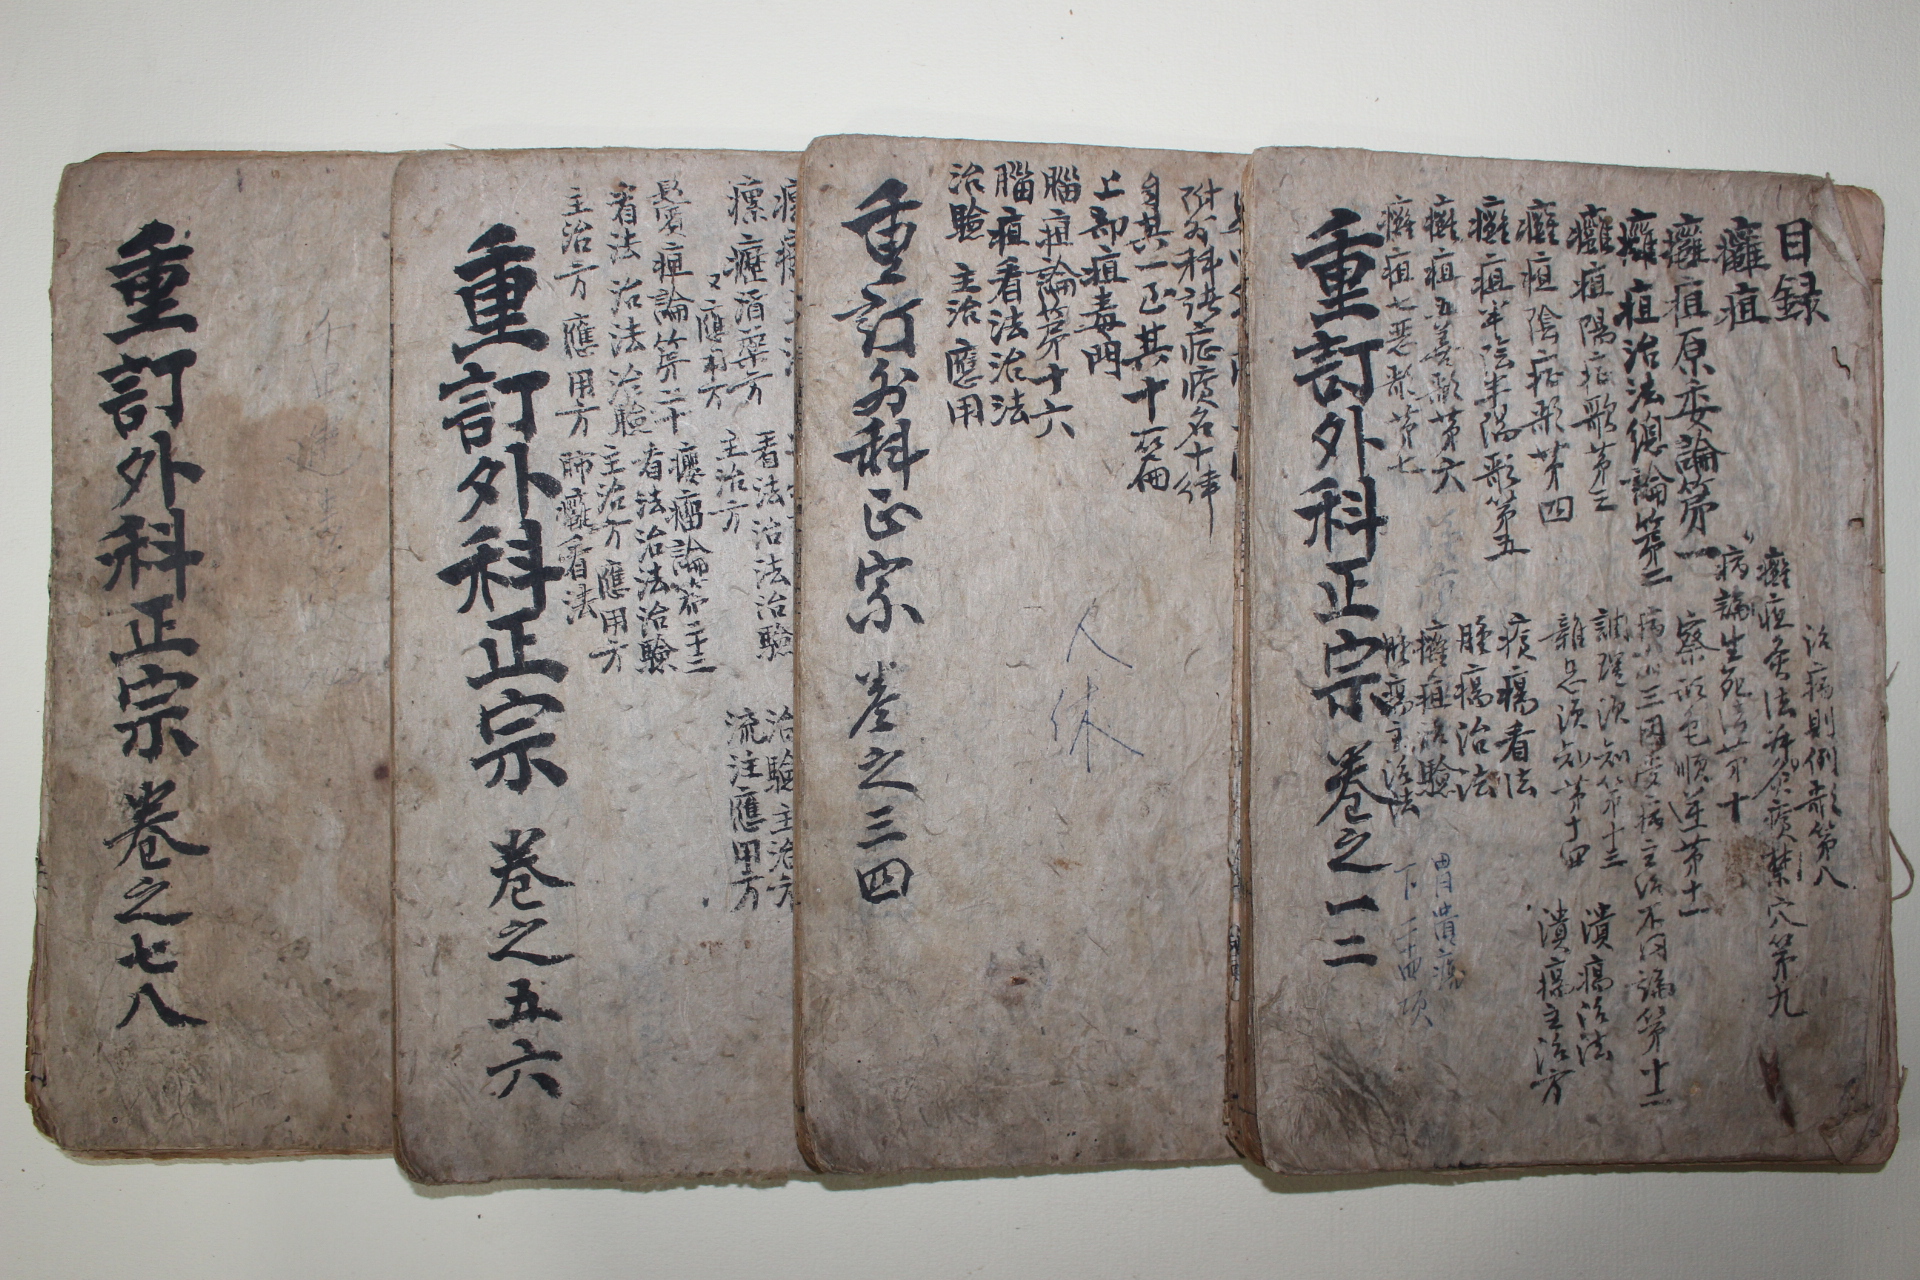 目録
癰疽
癰疽原委論第一
癰疽治法總論第二
癰疽陽症歌第三
癰疽陰症歌第四
癰疽半陰半陽歌第五
癰疽五善歌第六
癰疽七惡歌第七
治病則例歌第八
癰疽灸法并禁灸瘡穴第九
病論生死法第十
察形色順逆第十一
病有三因受病主治不同論第十二
調理須知第十三
雜忌須知第十四
腫瘍看法
腫瘍治法
癰疽治驗
腫瘍主治法
潰瘍治法
潰瘍主治方
重訂外科正宗 卷之一二
附外科諸症瘡名十律
自其一至其十一篇
上部疽毒門
腦疽論第十六
腦疽看法治法
治驗 主治 應用
重訂外科正宗 卷之三四
人
休
瘰癧消藥方
又應用方
看法治法治驗
主治方
治驗主治方
流注應用方
論第二十
看法治法治驗
主治方 應用方
癭瘤論第二十三
看法治法治驗
主治方應用方
肺癰看法
重訂外科正宗 卷之五六
重訂外科正宗 卷之七八